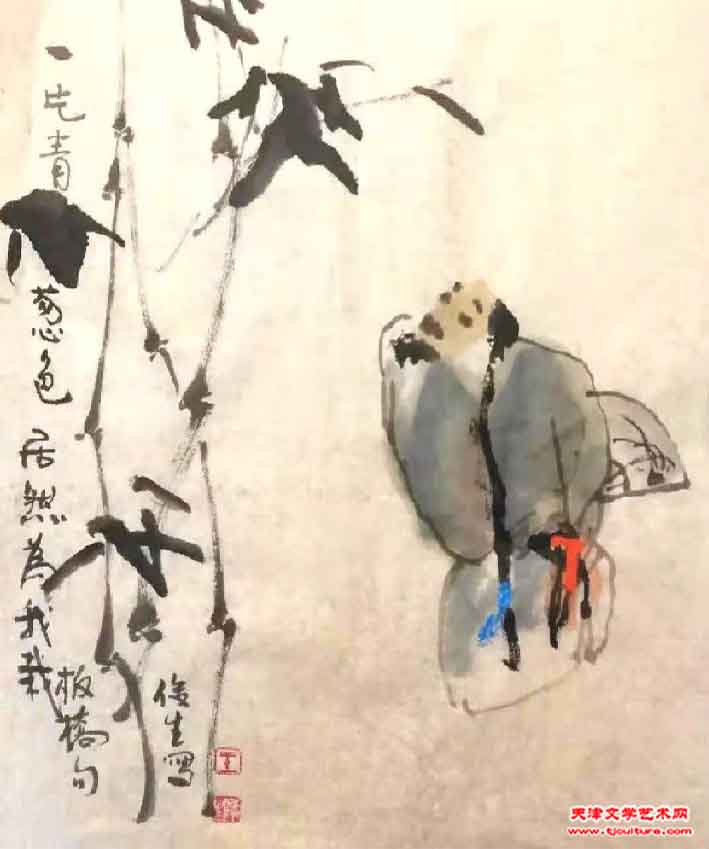 一片青
葱色居然為我栽
板橋句
俊生寫
王
天津文学艺术网
www.tjculture.com